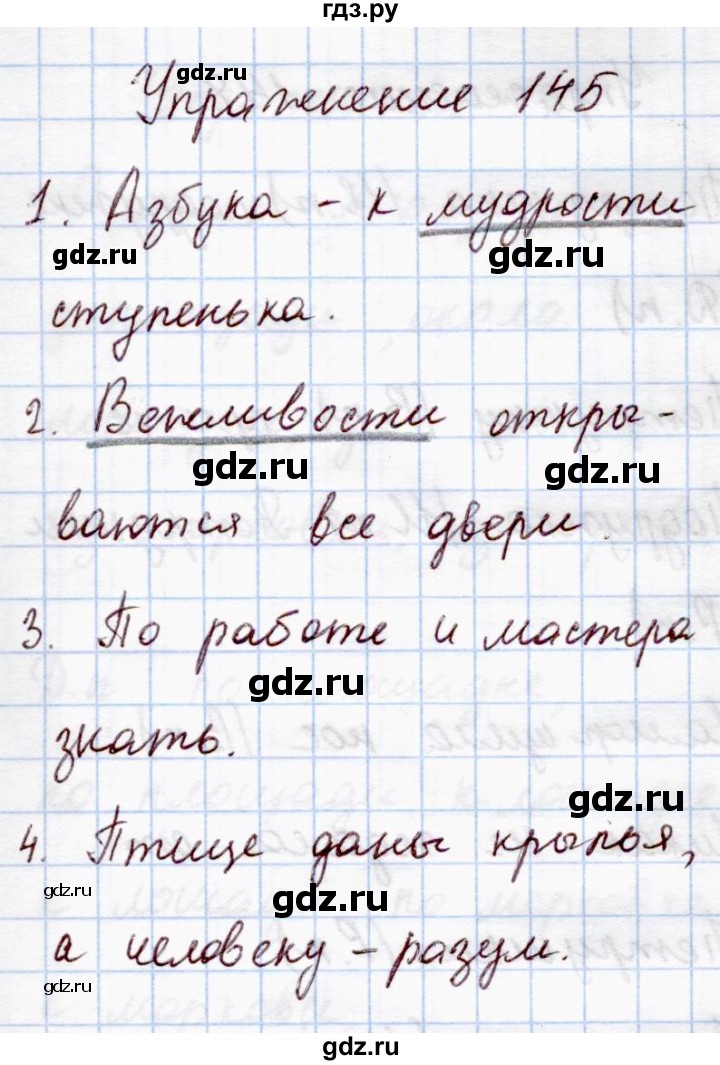 гдз.ру
gdz.ru
Упражнение 145
1. Азбука - к мудрости
gdz.ru
gdz.ru
ступенька.
2. Вежливости откры-
gdz.ru
gdz.ru
ваются все двери.
3. По работе и мастера
gdz.ru
знать.
gdz.ru
4. Птице даны крылья,
gdz.ru
gdz.ru
а человеку - разум.
gdz.ru
gdz.ru